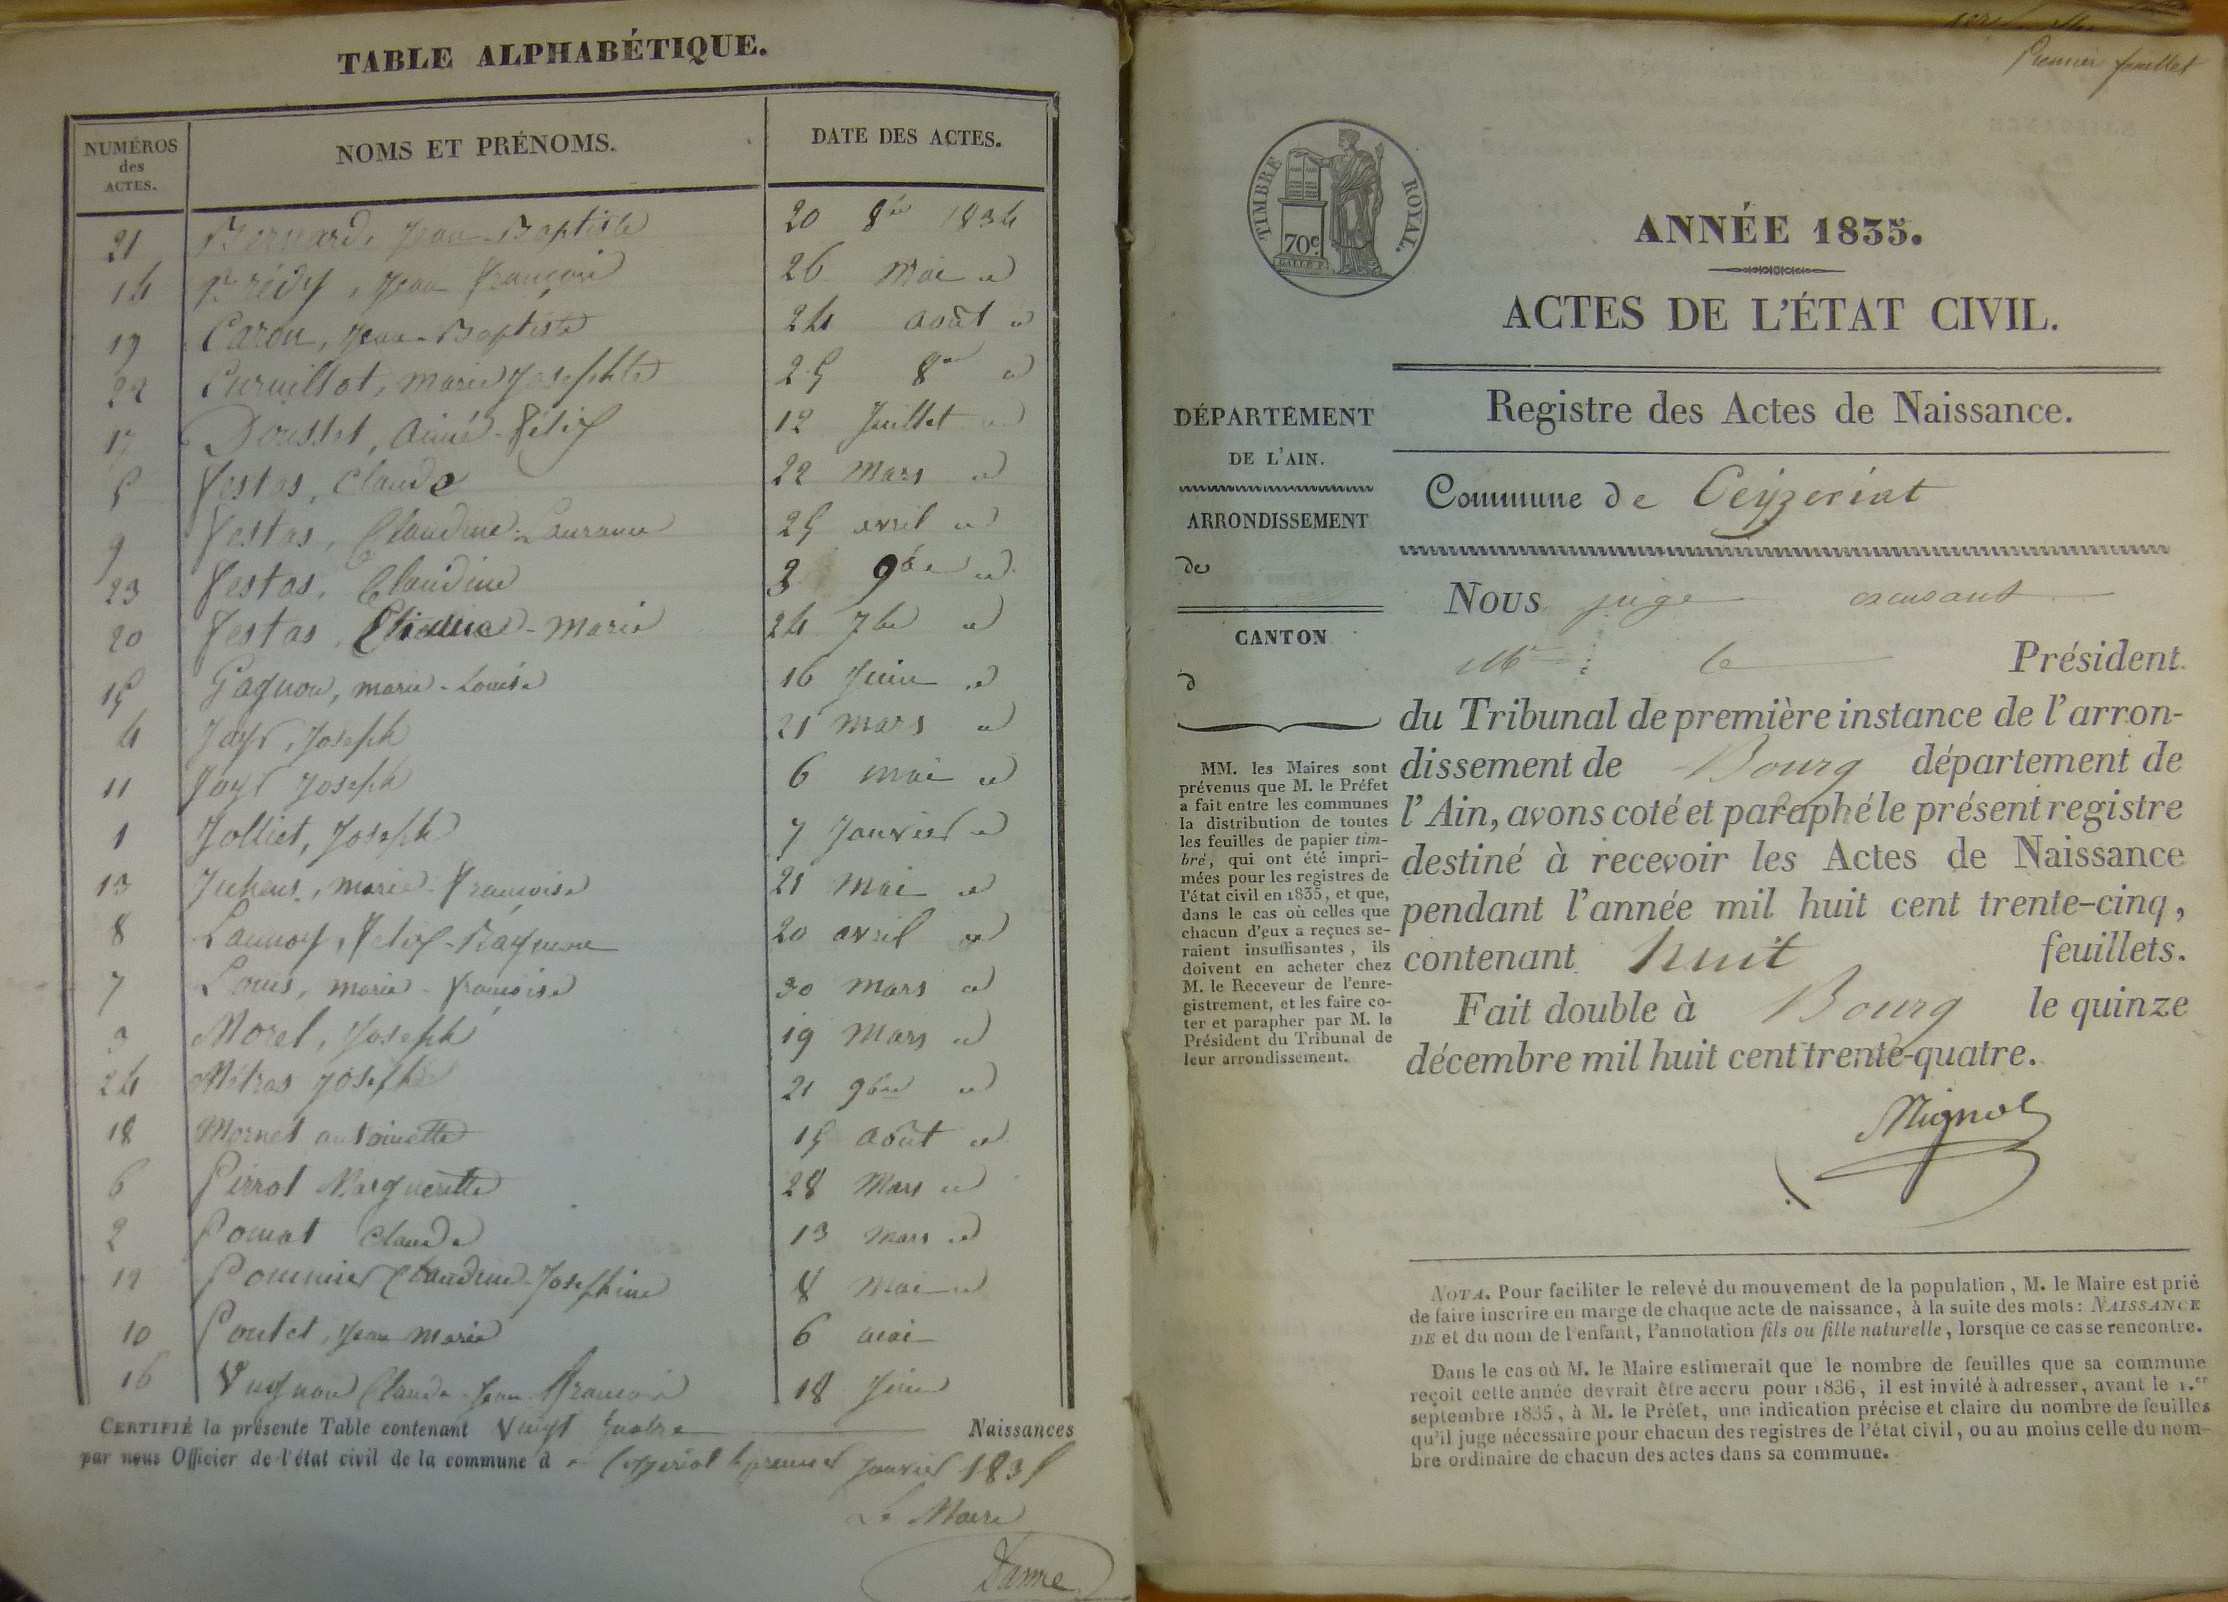 TABLE ALPHABÉTIQUE.
NUMÉROS des ACTES. NOMS ET PRÉNOMS. DATE DES ACTES.
21 Bernard, Jean-Baptiste 20 8bre 1834
14 Brédy, Jean François 26 Mai id
19 Caron, Jean-Baptiste 24 août id
22 Curvillot, marie Josephte 25 8bre id
17 Dousset, Aimé-Félix 12 Juillet id
5 Festas, Claude 22 Mars id
9 Festas, Claudine-Laurance 25 avril id
23 Festas, Claudine 3 9bre id
20 Festas, Marie 24 7bre id
15 Gagnon, marie-Louise 16 Juin id
4 Jayr, Joseph 21 mars id
11 Jayr Joseph 6 mai id
1 Jolliet, Joseph 7 Janvier id
13 marie Françoise 21 Mai id
8 Launoy, Felix 20 avril id
7 Louis, marie-françoise 30 mars id
Morel, Joseph 19 Mars id
24 Métras Joseph 21 9bre id
18 Mornet antoinette 15 Août id
6 Pirrot Margueritte 28 Mars id
2 Pomat Claude 13 Mars id
12 Pommier Claudine-Josephine 8 Mai id
10 Poutet, Jean marie 6 mai
16 Vugnon Claude-Jean François 18 Juin
CERTIFIÉ la présente Table contenant Vingt quatre Naissances
par nous Officier de l'état civil de la commune d Ceyzeriat le premier Janvier 1835
Le Maire
Darme
Premier feuillet
TIMBRE ROYAL.
70c
ANNÉE 1835.
ACTES DE L'ÉTAT CIVIL.
Registre des Actes de Naissance.
DÉPARTEMENT
DE L'AIN.
ARRONDISSEMENT
de
CANTON
d
MM. les Maires sont
prévenus que M. le Préfet
a fait entre les communes
la distribution de toutes
les feuilles de papier tim-
bré, qui ont été impri-
mées pour les registres de
l'état civil en 1835, et que,
dans le cas où celles que
chacun d'eux a reçues se-
raient insuffisantes, ils
doivent en acheter chez
M. le Receveur de l'enre-
gistrement, et les faire co-
ter et parapher par M. le
Président du Tribunal de
leur arrondissement.
Commune de Ceyzeriat
Nous juge
Mr le Président
du Tribunal de première instance de l'arron-
dissement de Bourg département de
l'Ain, avons coté et paraphé le présent registre
destiné à recevoir les Actes de Naissance
pendant l'année mil huit cent trente-cinq,
contenant huit feuillets.
Fait double à Bourg le quinze
décembre mil huit cent trente-quatre.
Mignot
NOTA. Pour faciliter le relevé du mouvement de la population, M. le Maire est prié
de faire inscrire en marge de chaque acte de naissance, à la suite des mots: NAISSANCE
DE et du nom de l'enfant, l'annotation fils ou fille naturelle, lorsque ce cas se rencontre.
Dans le cas où M. le Maire estimerait que le nombre de feuilles que sa commune
reçoit cette année devrait être accru pour 1836, il est invité à adresser, avant le 1.er
septembre 1835, à M. le Préfet, une indication précise et claire du nombre de feuilles
qu'il juge nécessaire pour chacun des registres de l'état civil, ou au moins celle du nom-
bre ordinaire de chacun des actes dans sa commune.